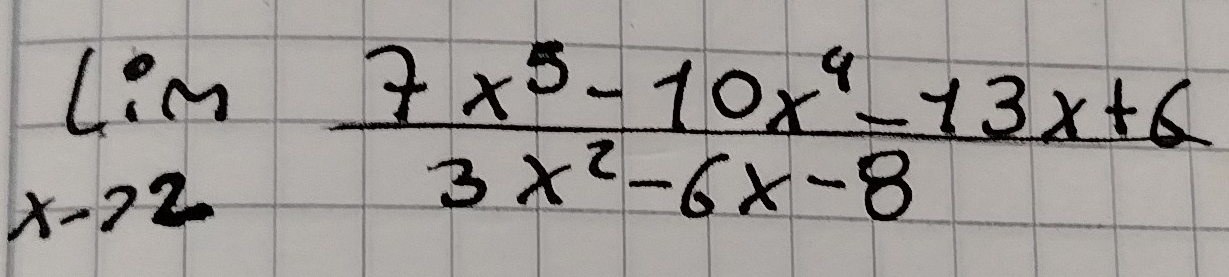 Lim 7x⁵-10x⁴-13x+6
x->2 3x²-6x-8